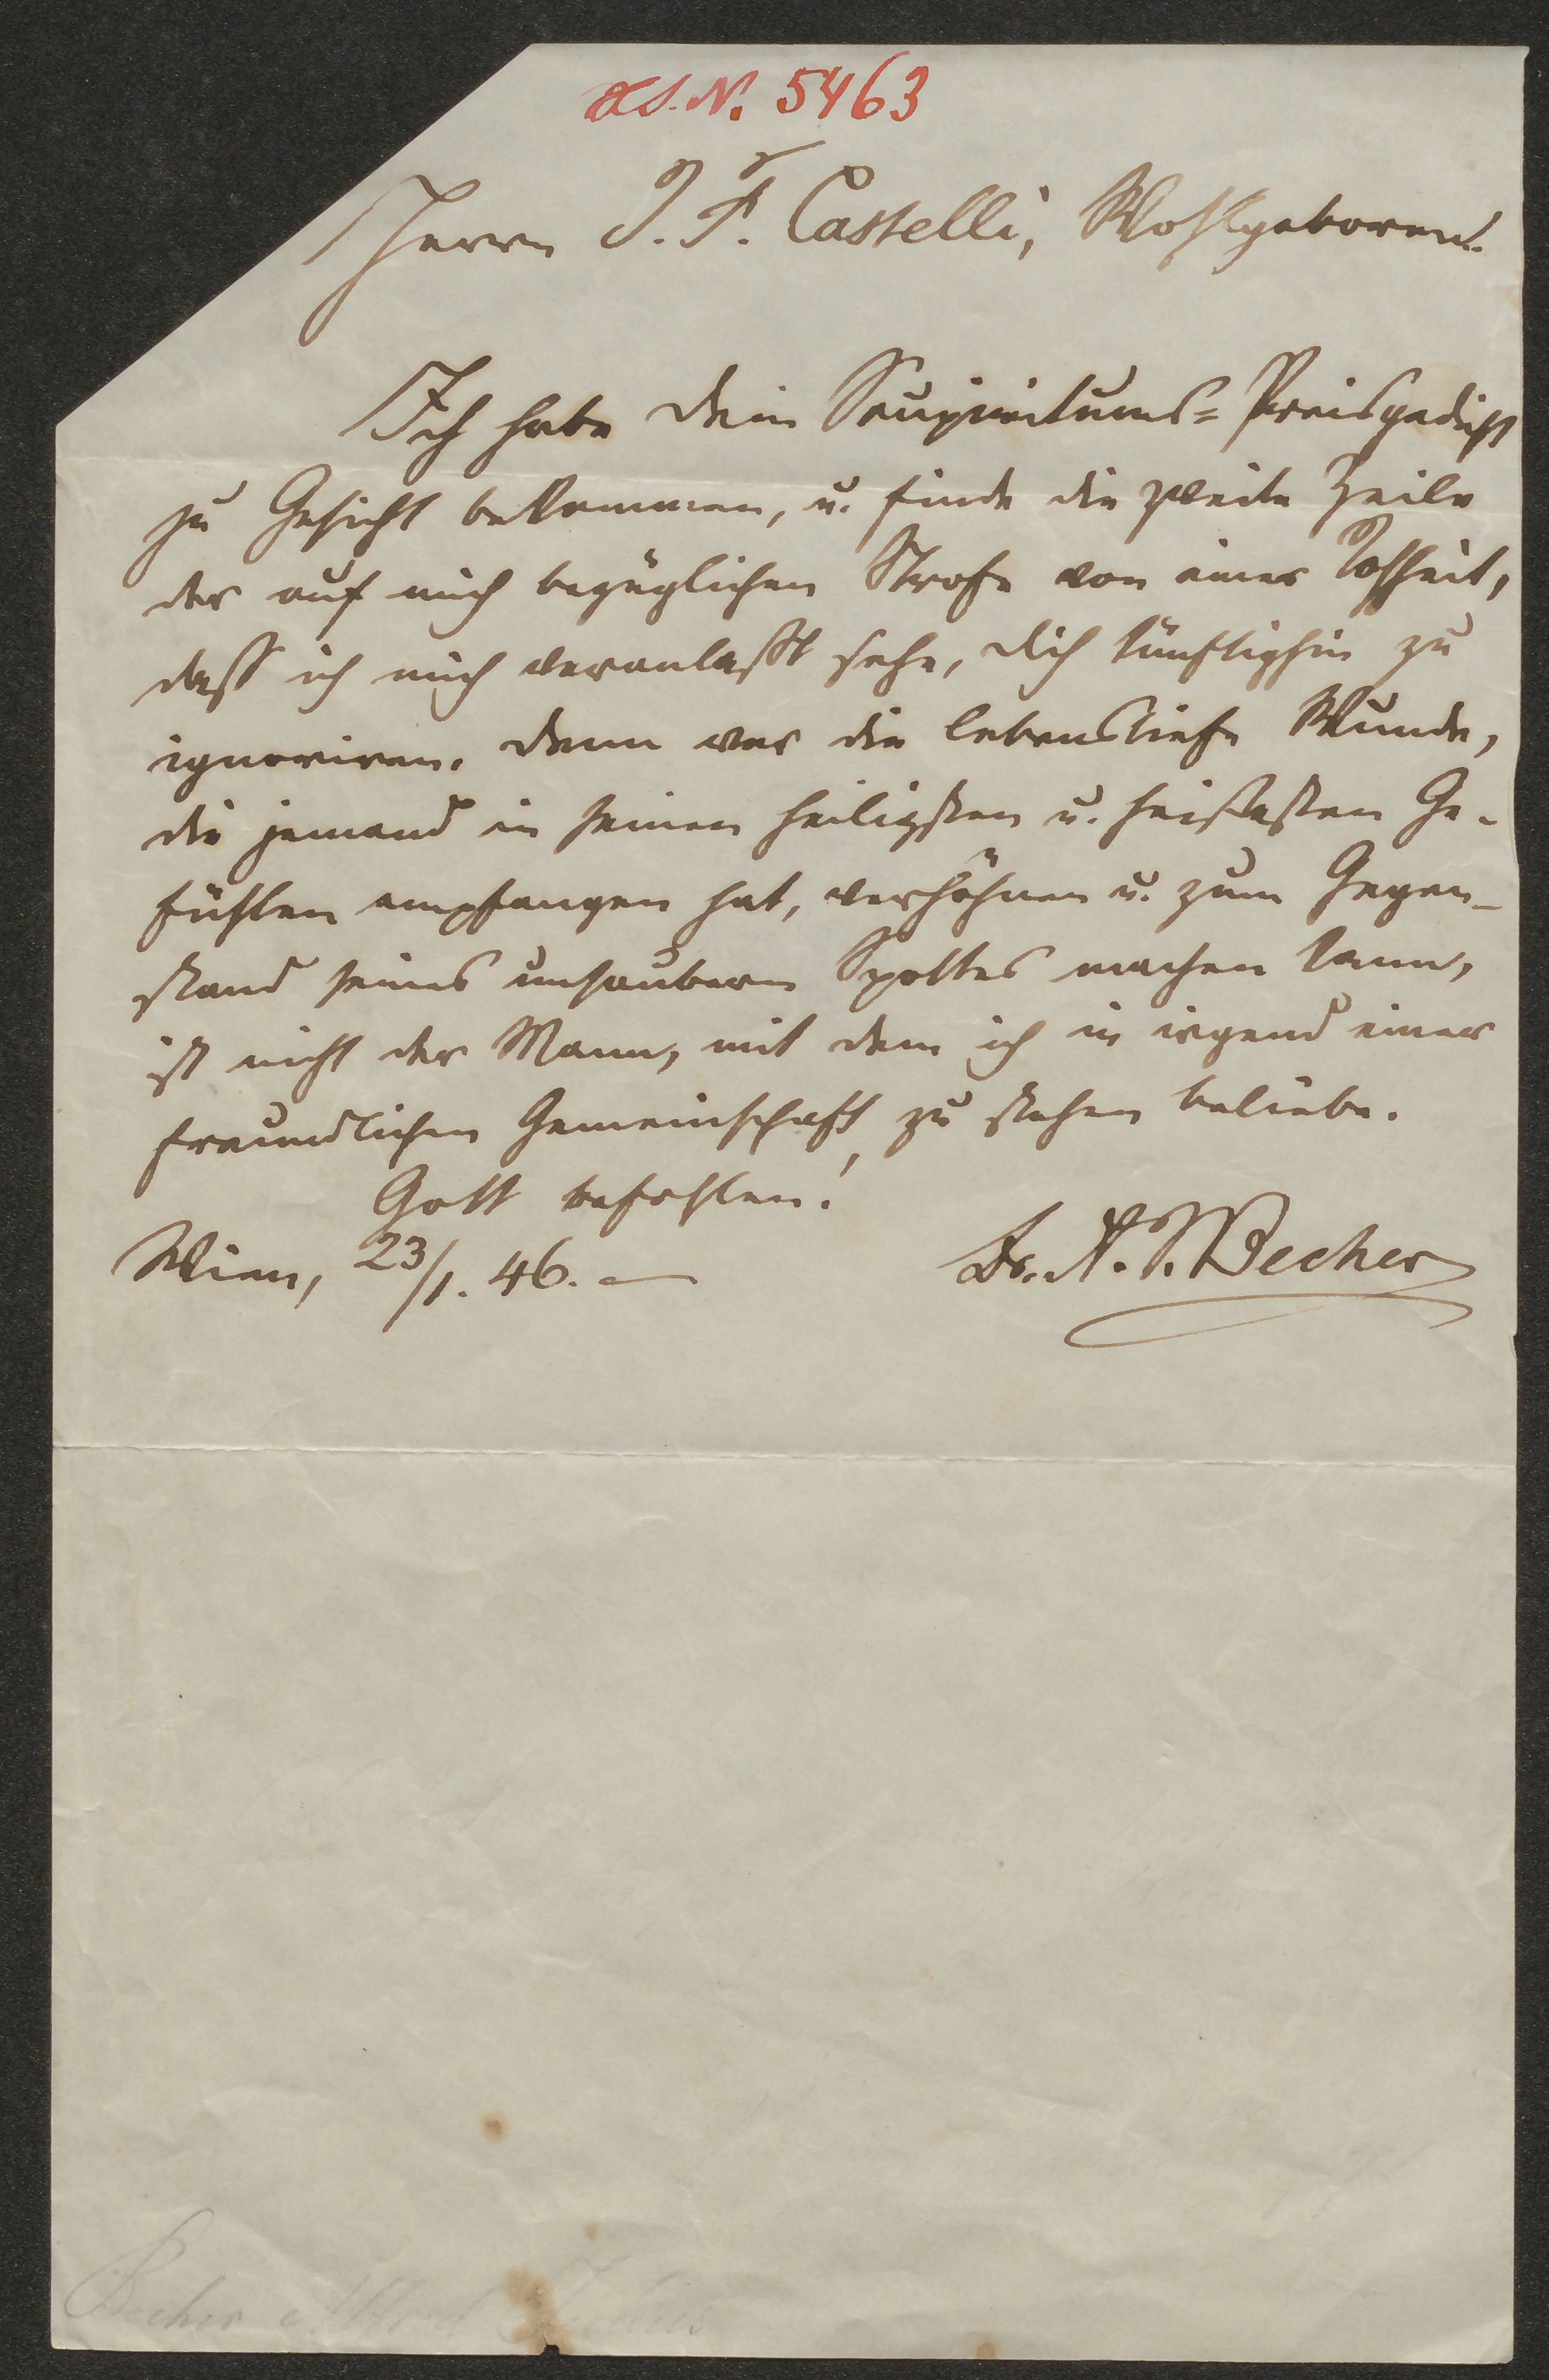 H.I.N. 5463
Herrn I. F. Castelli, Wohlgeboren.
Ich habe dein Soupiritums=Preisgedicht
zu Gesicht bekommen, u. finde die zweite Zeile
der auf mich bezüglichen Strofe von einer Rohheit,
dass ich mich veranlasst sehe, dich künftighin zu
ignoriren. Denn wer die lebenstiefe Wunde,
die jemand in seinen heiligsten u. heißesten Ge-
fühlen empfangen hat, verhöhnen u. zum Gegen-
stand seines unsaubern Spottes machen kann,
ist nicht der Mann, mit dem ich in irgend einer
freundlichen Gemeinschaft zu stehen beliebe.
Gott befohlen!
Wien, 23/1. 46. — Dr. A. J. Becher
Becher Alfred Julius